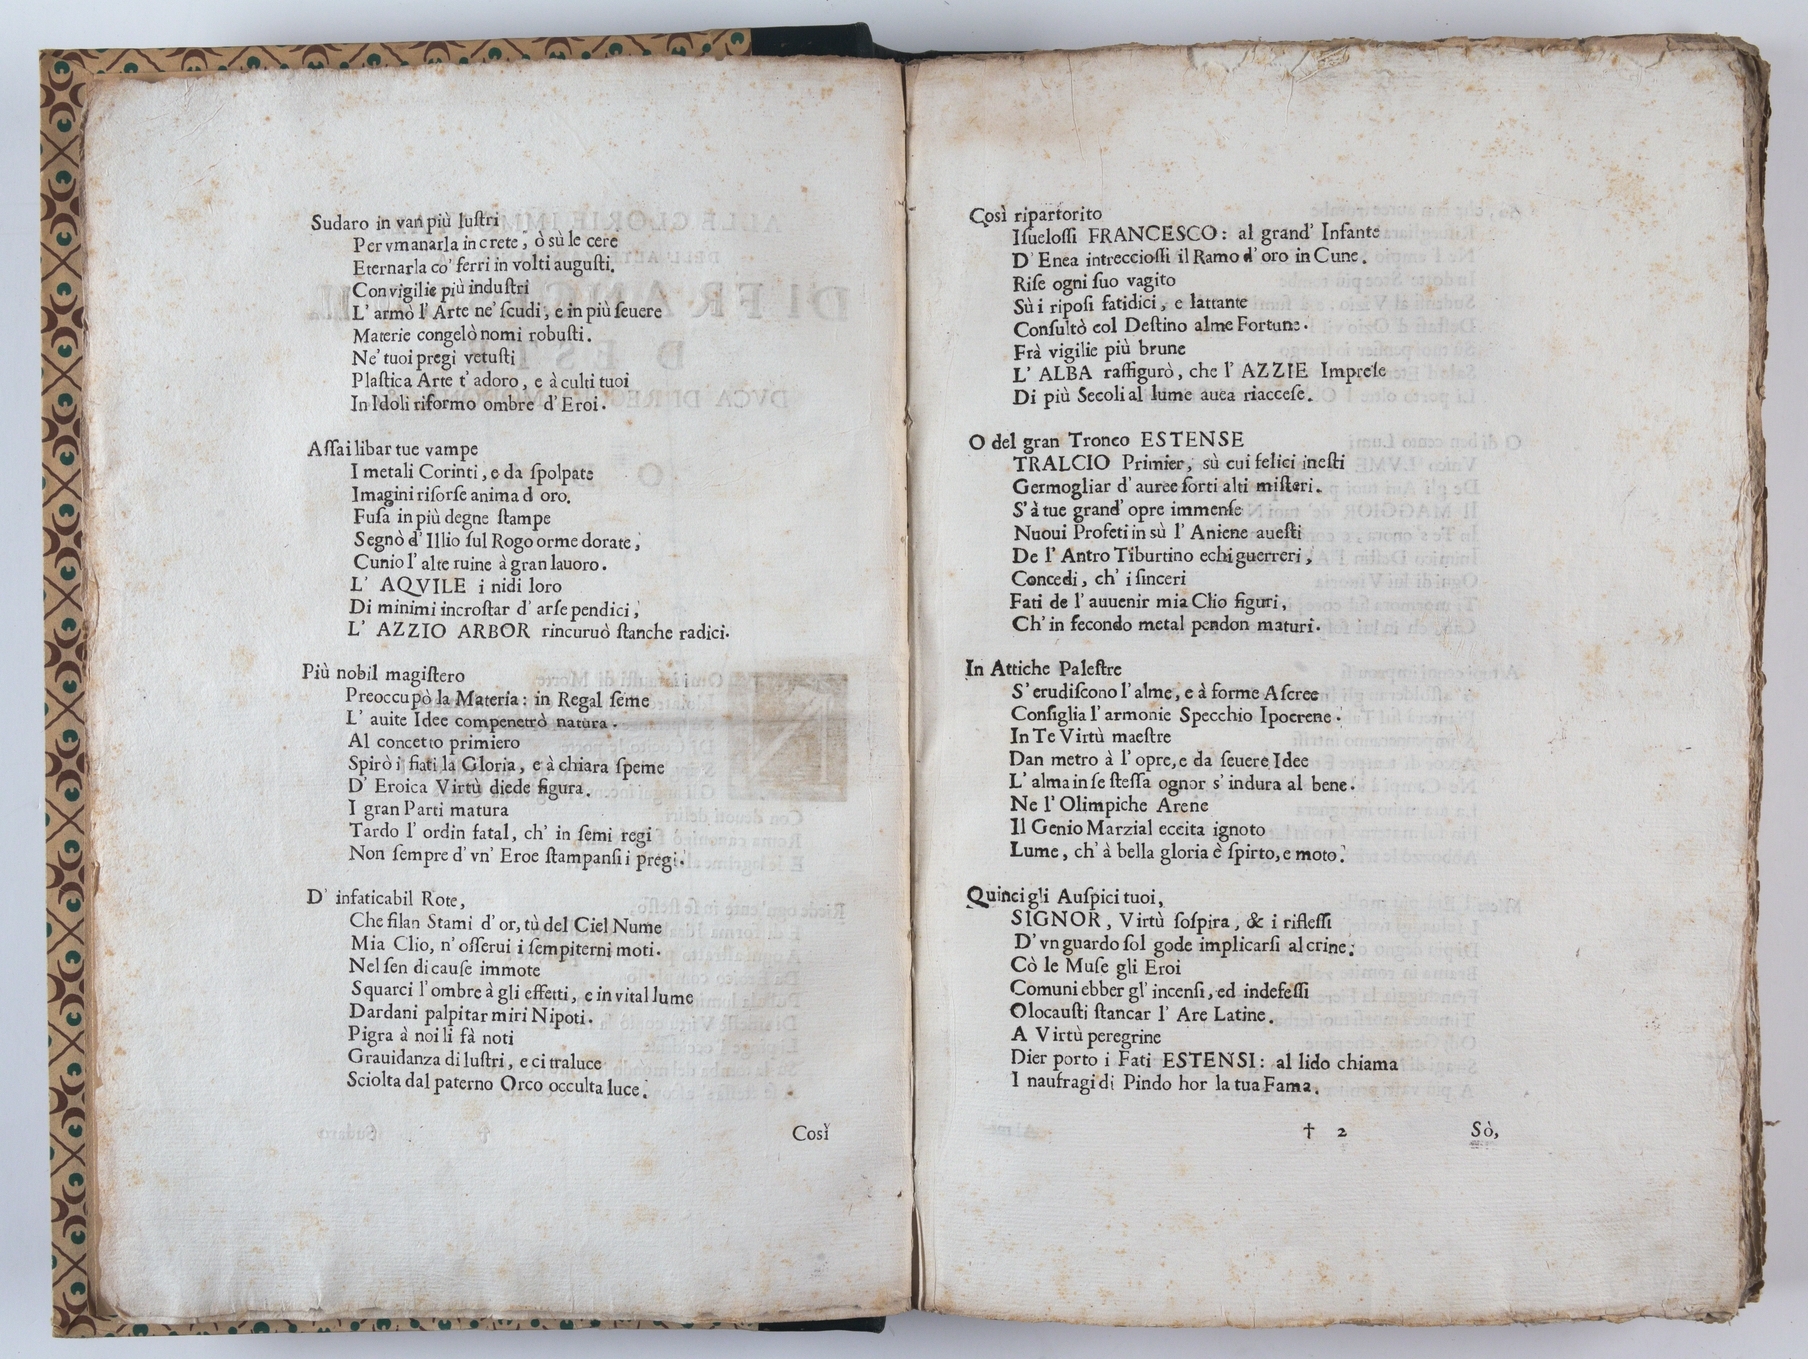 Sudaro in van più luſtri
Per vmanarla in crete, ò sù le cere
Eternarla co' ferri in volti auguſti.
Con vigilie più induſtri
L' armò l' Arte ne' ſcudi, e in più ſeuere
Materie congelò nomi robuſti.
Ne' tuoi pregi vetuſti
Plaſtica Arte t' adoro, e à culti tuoi
In Idoli riformo ombre d' Eroi.
Aſſai libar tue vampe
I metali Corinti, e da ſpolpate
Imagini riſorſe anima d oro.
Fuſa in più degne ſtampe
Segnò d' Illio ſul Rogo orme dorate,
Cunio l' alte ruine à gran lauoro.
L' AQVILE i nidi loro
Di minimi incroſtar d' arſe pendici,
L' AZZIO ARBOR rincuruò ſtanche radici.
Più nobil magiſtero
Preoccupò la Materia: in Regal ſeme
L' auite Idee compenetrò natura.
Al concetto primiero
Spirò i fiati la Gloria, e à chiara ſpeme
D' Eroica Virtù diede figura.
I gran Parti matura
Tardo l' ordin fatal, ch' in ſemi regi
Non ſempre d' vn' Eroe ſtampanſi i pregi.
D' infaticabil Rote,
Che filan Stami d' or, tù del Ciel Nume
Mia Clio, n' oſſerui i ſempiterni moti.
Nel ſen di cauſe immote
Squarci l' ombre à gli effetti, e in vital lume
Dardani palpitar miri Nipoti.
Pigra à noi li fà noti
Grauidanza di luſtri, e ci traluce
Sciolta dal paterno Orco occulta luce.
Così
Così ripartorito
Iſueloſſi FRANCESCO: al grand' Infante
D' Enea intreccioſſi il Ramo d' oro in Cune.
Riſe ogni ſuo vagito
Sù i ripoſi fatidici, e lattante
Conſultò col Deſtino alme Fortune.
Frà vigilie più brune
L' ALBA raffigurò, che l' AZZIE Impreſe
Di più Secoli al lume auea riacceſe.
O del gran Tronco ESTENSE
TRALCIO Primier, sù cui felici ineſti
Germogliar d' auree ſorti alti miſteri.
S' à tue grand' opre immenſe
Nuoui Profeti in sù l' Aniene aueſti
De l' Antro Tiburtino echi guerreri,
Concedi, ch' i ſinceri
Fati de l' auuenir mia Clio figuri,
Ch' in fecondo metal pendon maturi.
In Attiche Paleſtre
S' erudiſcono l' alme, e à forme Aſcree
Conſiglia l' armonie Specchio Ipocrene.
In Te Virtù maeſtre
Dan metro à l' opre, e da ſeuere Idee
L' alma in ſe ſteſſa ognor s' indura al bene.
Ne l' Olimpiche Arene
Il Genio Marzial eccita ignoto
Lume, ch' à bella gloria è ſpirto, e moto.
Quinci gli Auſpici tuoi,
SIGNOR, Virtù ſoſpira, & i rifleſſi
D' vn guardo ſol gode implicarſi al crine;
Cò le Muſe gli Eroi
Comuni ebber gl' incenſi, ed indefeſſi
Olocauſti ſtancar l' Are Latine.
A Virtù peregrine
Dier porto i Fati ESTENSI: al lido chiama
I naufragi di Pindo hor la tua Fama.
† 2 Sò,